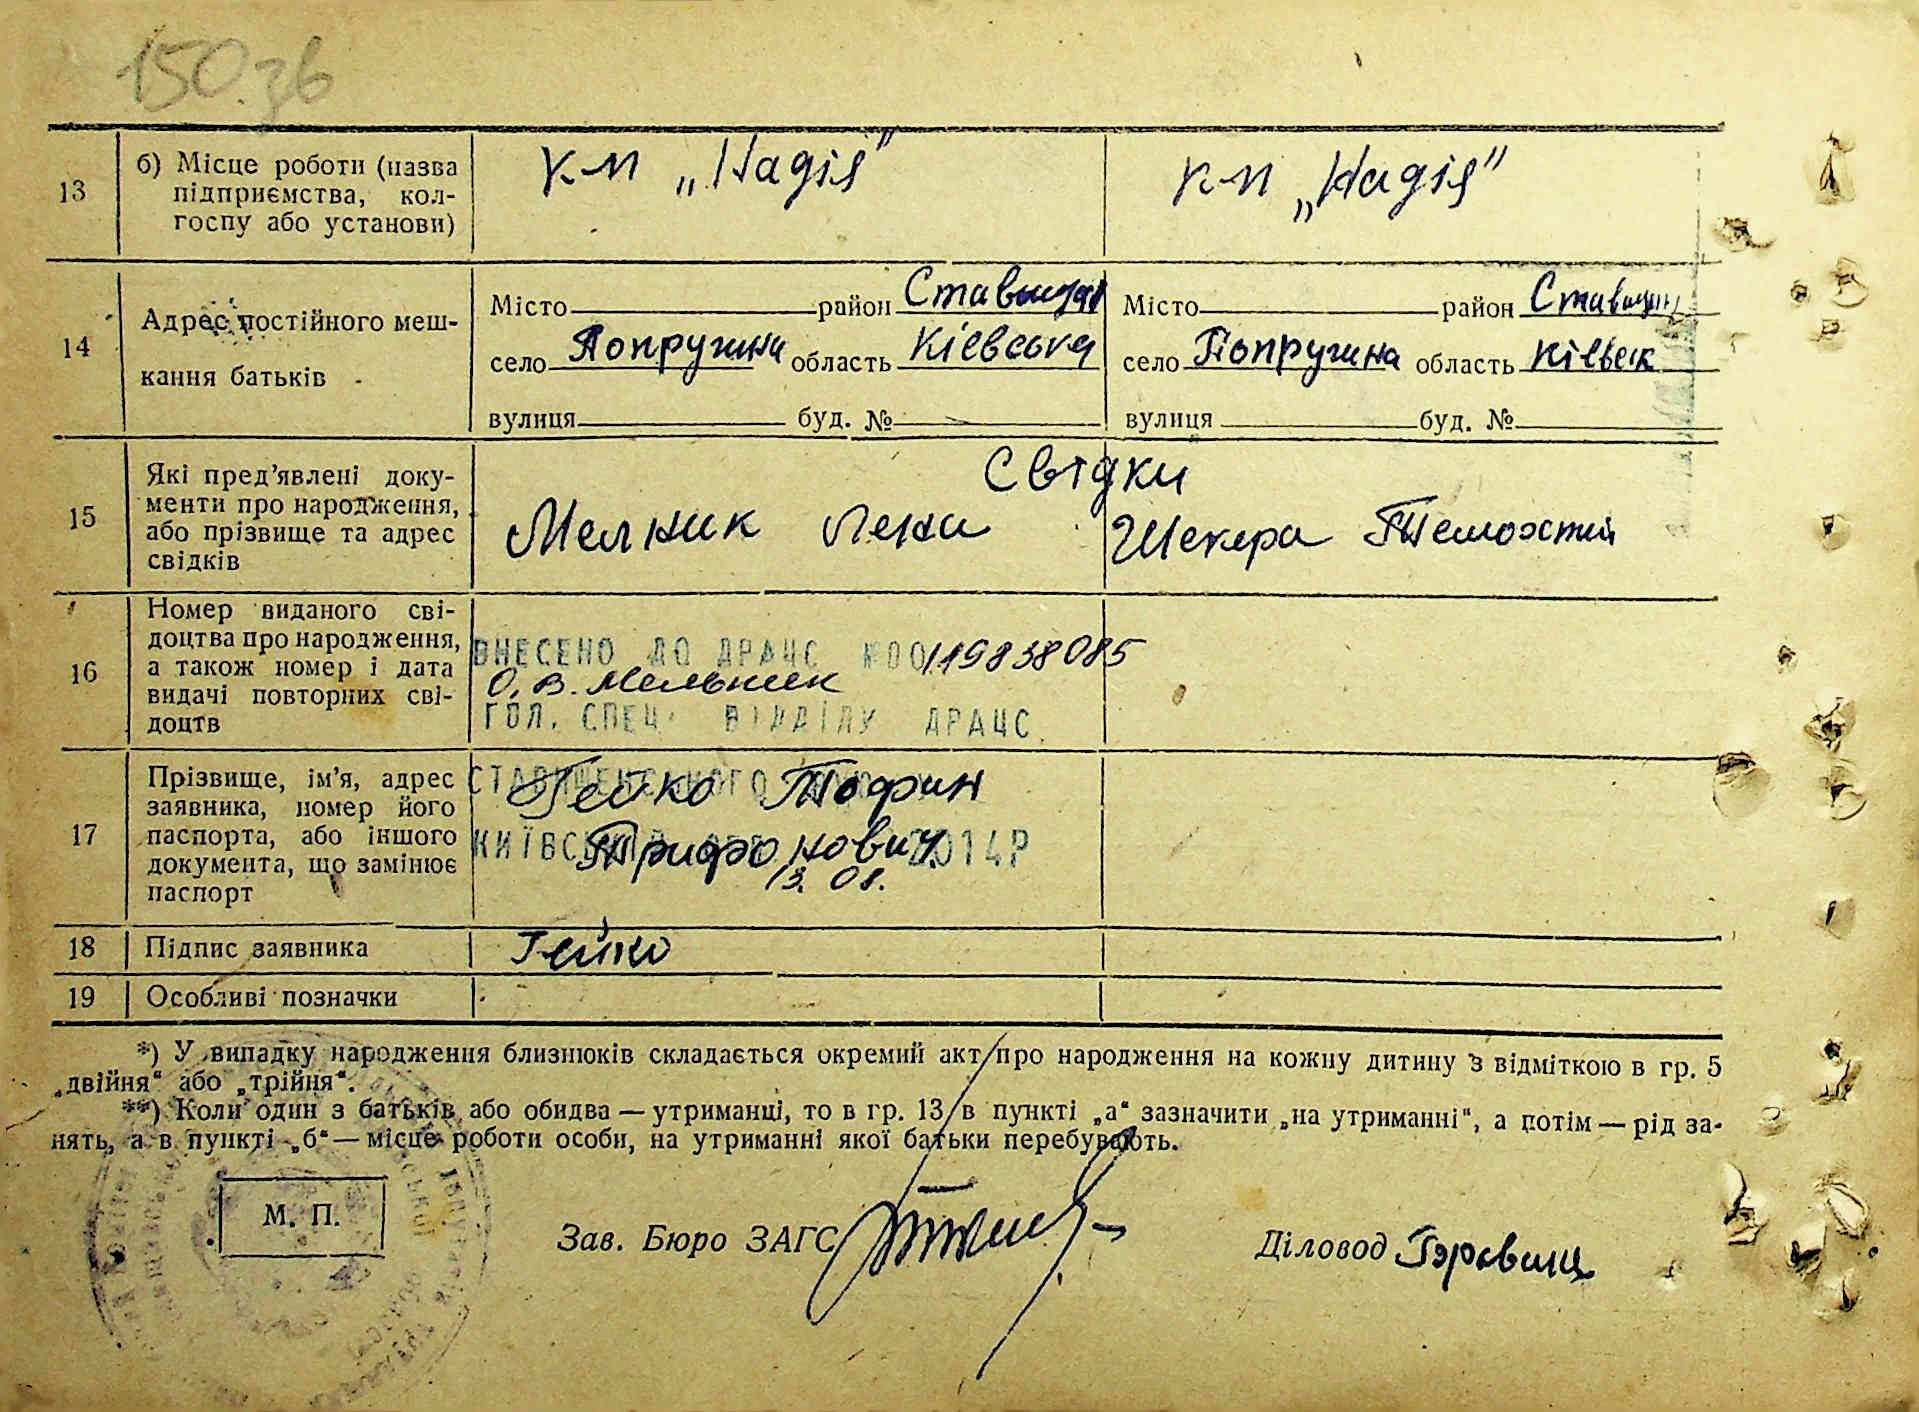 150 зв
13 б) Місце роботи (назва підприємства, колгоспу або установи) КМ „Надія" КМ „Надія"
14 Адрес постійного мешкання батьків
Місто район Ставищан Місто район Ставищан
село Попружина область Кієвська село Попружина область Кієвськ
вулиця буд. № вулиця буд. №
15 Які пред'явлені документи про народження, або прізвище та адрес свідків
Свідки
Мелник Лена Шекера
16 Номер виданого свідоцтва про народження, а також номер і дата видачі повторних свідоцтв
ВНЕСЕНО ДО ДРАЦС №00119838085
О. В. Мельник
ГОЛ. СПЕЦ. ВІДДІЛУ ДРАЦС
17 Прізвище, ім'я, адрес заявника, номер його паспорта, або іншого документа, що замінює паспорт
Гейко Тофин
Трифонович
2014Р
13. 08.
18 Підпис заявника Гейко
19 Особливі позначки
*) У випадку народження близнюків складається окремий акт про народження на кожну дитину з відміткою в гр. 5
„двійня" або „трійня".
**) Коли один з батьків або обидва — утриманці, то в гр. 13 в пункті „а" зазначити „на утриманні", а потім — рід за-
нять, а в пункті „б" — місце роботи особи, на утриманні якої батьки перебувають.
М. П.
Зав. Бюро ЗАГС Діловод